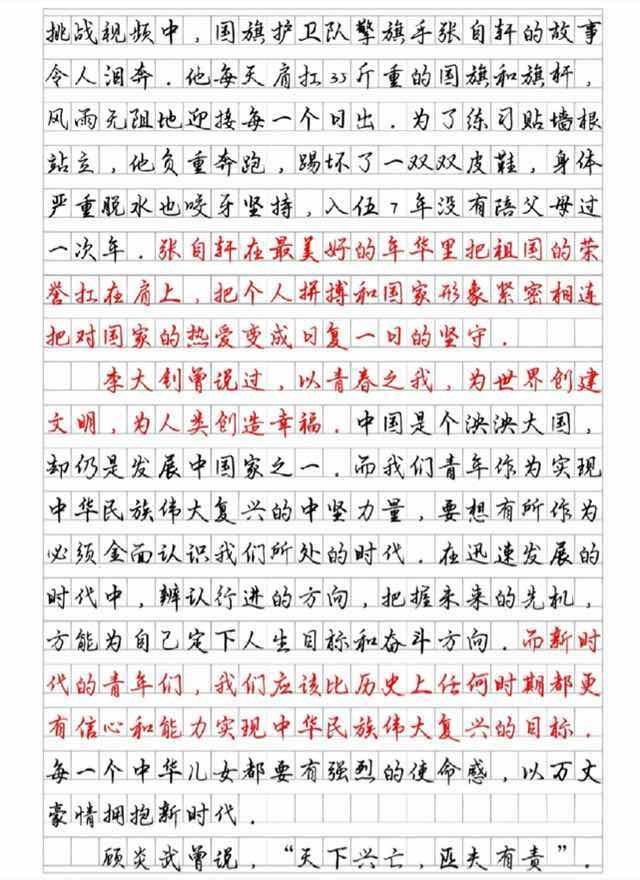 挑战视频中，国旗护卫队擎旗手张自轩的故事
令人泪奔．他每天肩扛35斤重的国旗和旗杆，
风雨无阻地迎接每一个日出．为了练习贴墙根
站立，他负重奔跑，踢坏了一双双皮鞋，身体
严重脱水也咬牙坚持，入伍7年没有陪父母过
一次年．张自轩在最美好的年华里把祖国的荣
誉扛在肩上，把个人拼搏和国家形象紧密相连
把对国家的热爱变成日复一日的坚守．
李大钊曾说过，以青春之我，为世界创建
文明，为人类创造幸福．中国是个泱泱大国，
却仍是发展中国家之一．而我们青年作为实现
中华民族伟大复兴的中坚力量，要想有所作为
必须全面认识我们所处的时代．在迅速发展的
时代中，辨认行进的方向，把握未来的先机，
方能为自己定下人生目标和奋斗方向．而新时
代的青年们，我们应该比历史上任何时期都更
有信心和能力实现中华民族伟大复兴的目标．
每一个中华儿女都要有强烈的使命感，以万丈
豪情拥抱新时代．
顾炎武曾说，“天下兴亡，匹夫有责”．